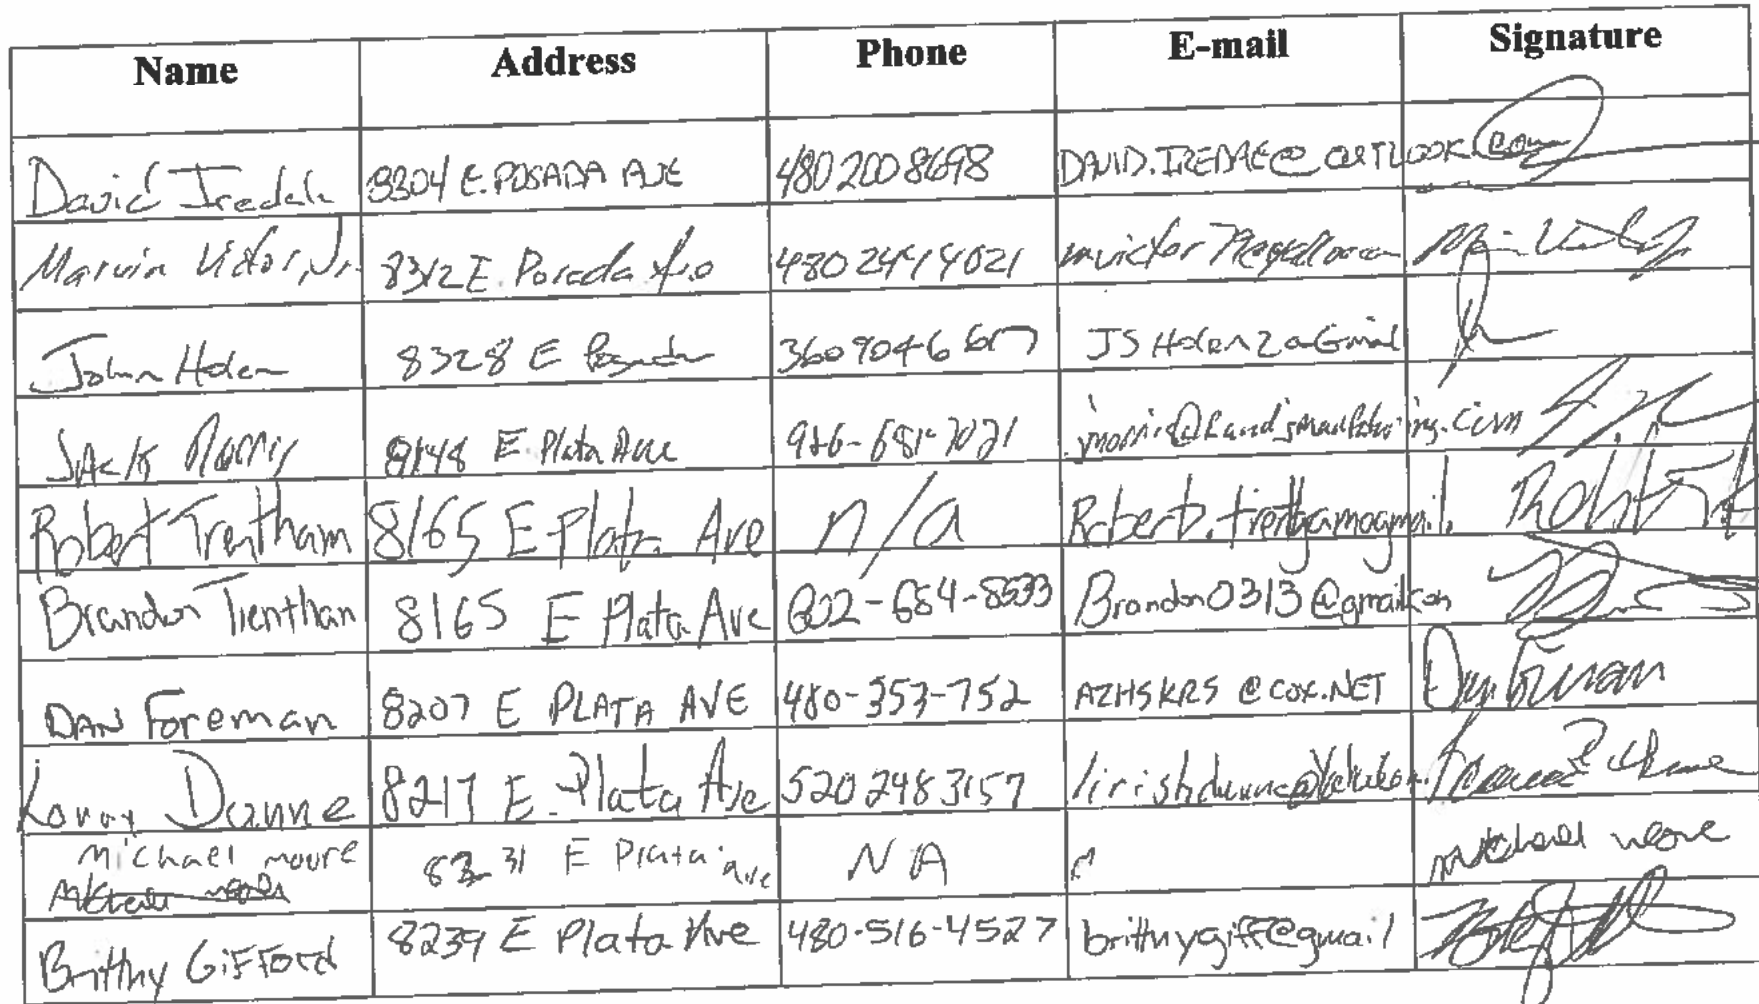 Name Address Phone E-mail Signature
David Iredale 8304 E. POSADA AVE 4802008698 DAVID.IREDALE@OUTLOOK.com
Marvin Victor, Jr. 8312 E Posada Ave 4802414021 mvictor
John Holen 8328 E Posada 3609046617 JSHolen2@Gmail
JACK Morris 8148 E Plata Ave 916-681-7021
Robert Trentham 8165 E Plata Ave n/a Robert.trentham@gmail.
Brandon Trenthan 8165 E Plata Ave 602-684-8533 Brandon0313@gmail.com
DAN Foreman 8207 E PLATA AVE 480-353-752 AZHSKRS@COX.NET Dan Foreman
Dunne 8217 E. Plata Ave 5202483157
Michael moore 8231 E Plata ave NA michael moore
Brittny GIFFord 8239 E Plata Ave 480-516-4527 brittnygiff@gmail